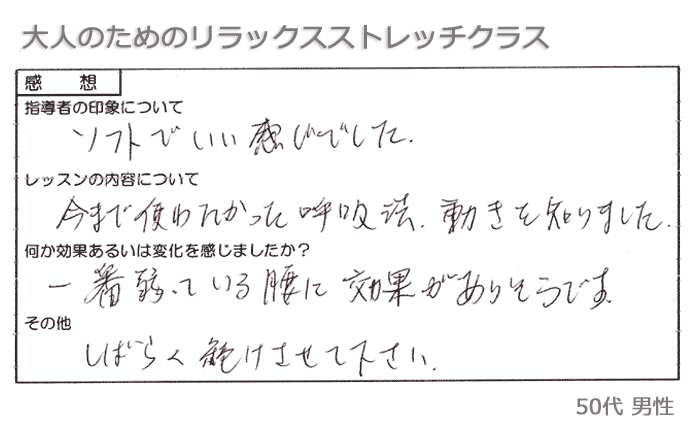 大人のためのリラックスストレッチクラス
感 想
指導者の印象について
ソフトでいい感じでした.
レッスンの内容について
今まで使わなかった呼吸法、動きを知りました.
何か効果あるいは変化を感じましたか？
一番弱っている腰に効果がありそうです.
その他
しばらく続けさせて下さい.
50代 男性